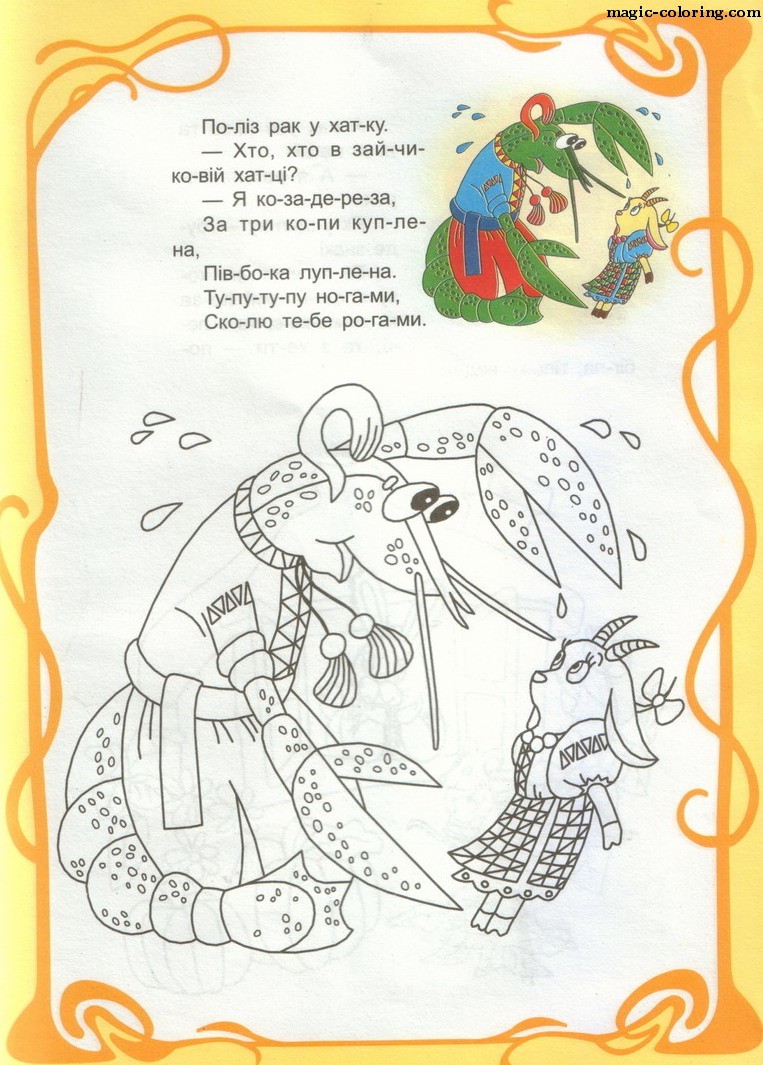 magic-coloring.com
По-ліз рак у хат-ку.
— Хто, хто в зай-чи-
ко-вій хат-ці?
— Я ко-за-де-ре-за,
За три ко-пи куп-ле-
на,
Пів-бо-ка луп-ле-на.
Ту-пу-ту-пу но-га-ми,
Ско-лю те-бе ро-га-ми.